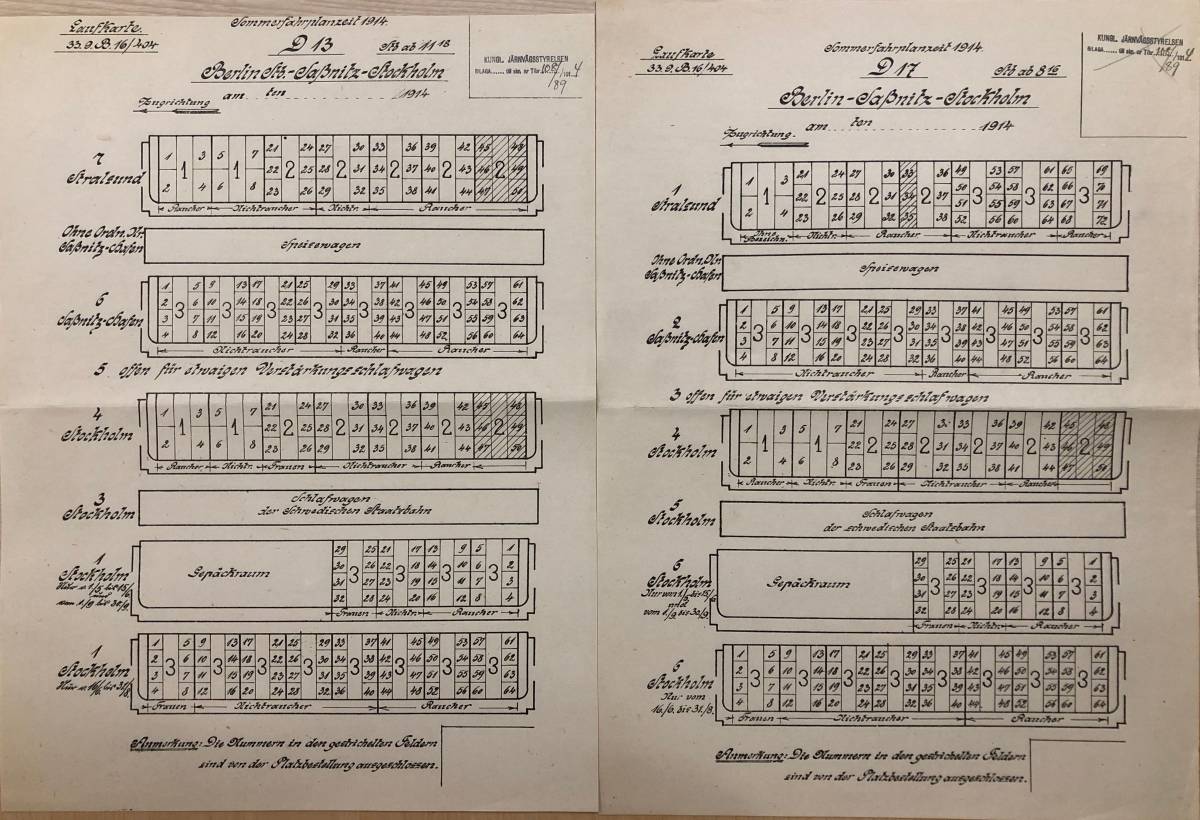 Laufkarte.
33.9.B.16/404
Sommerfahrplanzeit 1914.
D 13 Stb ab 11 18
Berlin Stb.-Saßnitz-Stockholm
am ten 1914
KUNGL. JÄRNVÄGSSTYRELSEN
Zugrichtung
7
Stralsund
1 3 5 7 21 24 27 30 33 36 39 42 45 48
1 1 22 2 25 28 2 31 34 2 37 40 2 43 46 2 49
2 4 6 8 23 26 29 32 35 38 41 44 47 50
Raucher Nichtraucher Nichtr. Raucher
Ohne Ordn. Nr.
Saßnitz-Hafen
Speisewagen
6
Saßnitz-Hafen
1 5 9 13 17 21 25 29 33 37 41 45 49 53 57 61
2 6 10 14 18 22 26 30 34 38 42 46 50 54 58 62
3 3 3 3 3 3 3 3
3 7 11 15 19 23 27 31 35 39 43 47 51 55 59 63
4 8 12 16 20 24 28 32 36 40 44 48 52 56 60 64
Nichtraucher Raucher Raucher
5 offen für etwaigen Verstärkungsschlafwagen
4
Stockholm
1 3 5 7 21 24 27 30 33 36 39 42 45 48
1 1 22 2 25 28 2 31 34 2 37 40 2 43 46 2 49
2 4 6 8 23 26 29 32 35 38 41 44 47 50
Raucher Nichtr. Frauen Nichtraucher Raucher
3
Stockholm
Schlafwagen
der Schwedischen Staatsbahn
1
Stockholm
Gepäckraum
29 25 21 17 13 9 5 1
30 26 22 18 14 10 6 2
3 3 3 3
31 27 23 19 15 11 7 3
32 28 24 20 16 12 8 4
Frauen Nichtr. Raucher
1
Stockholm
1 5 9 13 17 21 25 29 33 37 41 45 49 53 57 61
2 6 10 14 18 22 26 30 34 38 42 46 50 54 58 62
3 3 3 3 3 3 3 3
3 7 11 15 19 23 27 31 35 39 43 47 51 55 59 63
4 8 12 16 20 24 28 32 36 40 44 48 52 56 60 64
Frauen Nichtraucher Raucher
Anmerkung: Die Nummern in den gestrichelten Feldern
sind von der Platzbestellung ausgeschlossen.
Laufkarte
33.9.B.16/404
Sommerfahrplanzeit 1914.
D 17 Stb ab 8 16
Berlin-Saßnitz-Stockholm
am ten 1914
KUNGL. JÄRNVÄGSSTYRELSEN
Zugrichtung.
1
Stralsund
1 3 21 24 27 30 33 36 49 53 57 61 65 69
1 22 2 25 28 2 31 34 2 37 50 54 58 62 66 70
3 3 3
51 55 59 63 67 71
2 4 23 26 29 32 35 38 52 56 60 64 68 72
Ohne Bezeichn. Nichtr. Raucher Nichtraucher Raucher
Ohne Ordn. Nr
Saßnitz-Hafen
Speisewagen
2
Saßnitz-Hafen
1 5 9 13 17 21 25 29 33 37 41 45 49 53 57 61
2 6 10 14 18 22 26 30 34 38 42 46 50 54 58 62
3 3 3 3 3 3 3 3
3 7 11 15 19 23 27 31 35 39 43 47 51 55 59 63
4 8 12 16 20 24 28 32 36 40 44 48 52 56 60 64
Nichtraucher Raucher Raucher
3 offen für etwaigen Verstärkungsschlafwagen
4
Stockholm
1 3 5 7 21 24 27 30 33 36 39 42 45 48
1 1 22 2 25 28 2 31 34 2 37 40 2 43 46 2 49
2 4 6 8 23 26 29 32 35 38 41 44 47 50
Raucher Nichtr. Frauen Nichtraucher Raucher
5
Stockholm
Schlafwagen
der schwedischen Staatsbahn
6
Stockholm
Nur von 1/5. bis 15/6.
und
vom 1/9. bis 30/9.
Gepäckraum
29 25 21 17 13 9 5 1
30 26 22 18 14 10 6 2
3 3 3 3
31 27 23 19 15 11 7 3
32 28 24 20 16 12 8 4
Frauen Nichtr. Raucher
6
Stockholm
Nur vom
16/6. bis 31/8.
1 5 9 13 17 21 25 29 33 37 41 45 49 53 57 61
2 6 10 14 18 22 26 30 34 38 42 46 50 54 58 62
3 3 3 3 3 3 3 3
3 7 11 15 19 23 27 31 35 39 43 47 51 55 59 63
4 8 12 16 20 24 28 32 36 40 44 48 52 56 60 64
Frauen Nichtraucher Raucher
Anmerkung: Die Nummern in den gestrichelten Feldern
sind von der Platzbestellung ausgeschlossen.